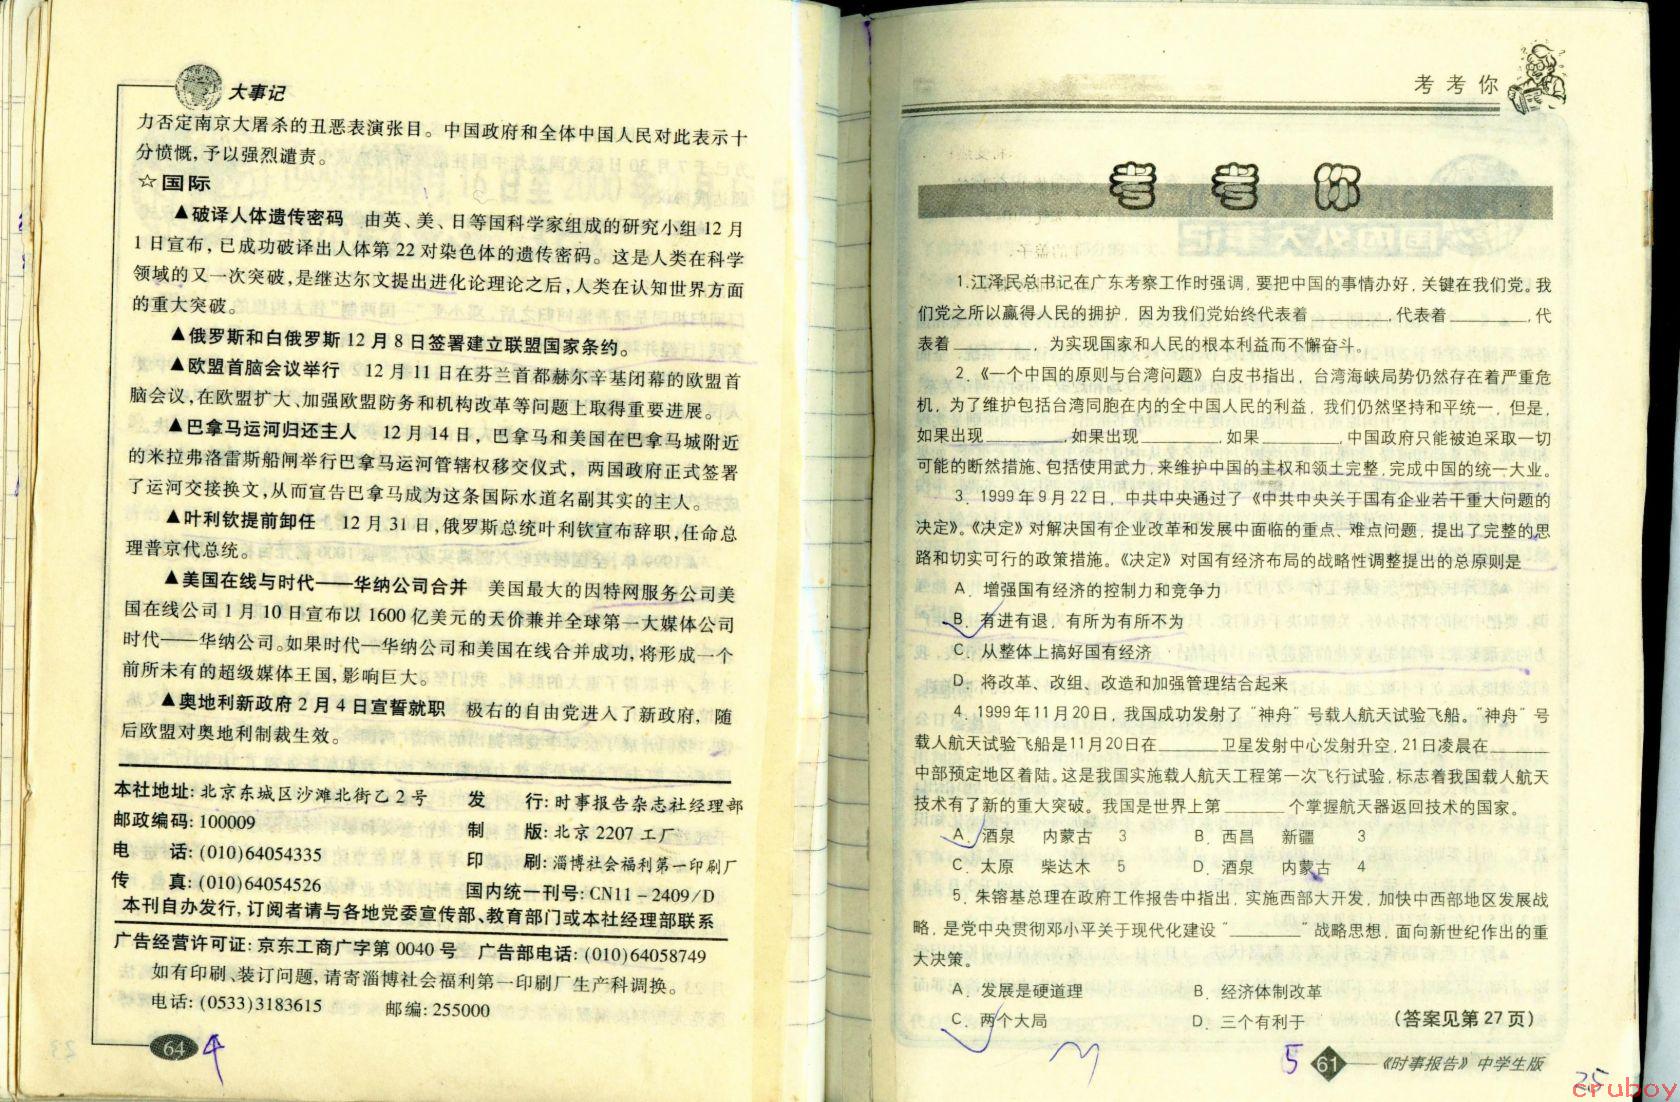 大事记
力否定南京大屠杀的丑恶表演张目。中国政府和全体中国人民对此表示十
分愤慨,予以强烈谴责。
☆国际
▲破译人体遗传密码 由英、美、日等国科学家组成的研究小组12月
1日宣布,已成功破译出人体第22对染色体的遗传密码。这是人类在科学
领域的又一次突破,是继达尔文提出进化论理论之后,人类在认知世界方面
的重大突破。
▲俄罗斯和白俄罗斯12月8日签署建立联盟国家条约。
▲欧盟首脑会议举行 12月11日在芬兰首都赫尔辛基闭幕的欧盟首
脑会议,在欧盟扩大、加强欧盟防务和机构改革等问题上取得重要进展。
▲巴拿马运河归还主人 12月14日,巴拿马和美国在巴拿马城附近
的米拉弗洛雷斯船闸举行巴拿马运河管辖权移交仪式,两国政府正式签署
了运河交接换文,从而宣告巴拿马成为这条国际水道名副其实的主人。
▲叶利钦提前卸任 12月31日,俄罗斯总统叶利钦宣布辞职,任命总
理普京代总统。
▲美国在线与时代——华纳公司合并 美国最大的因特网服务公司美
国在线公司1月10日宣布以1600亿美元的天价兼并全球第一大媒体公司
时代——华纳公司。如果时代—华纳公司和美国在线合并成功,将形成一个
前所未有的超级媒体王国,影响巨大。
▲奥地利新政府2月4日宣誓就职 极右的自由党进入了新政府,随
后欧盟对奥地利制裁生效。
本社地址:北京东城区沙滩北街乙2号 发 行:时事报告杂志社经理部
邮政编码:100009 制 版:北京2207工厂
电 话:(010)64054335 印 刷:淄博社会福利第一印刷厂
传 真:(010)64054526 国内统一刊号:CN11-2409/D
本刊自办发行,订阅者请与各地党委宣传部、教育部门或本社经理部联系
广告经营许可证:京东工商广字第0040号 广告部电话:(010)64058749
如有印刷、装订问题,请寄淄博社会福利第一印刷厂生产科调换。
电话:(0533)3183615 邮编:255000
64 4
考考你
考考你
1.江泽民总书记在广东考察工作时强调,要把中国的事情办好,关键在我们党。我
们党之所以赢得人民的拥护,因为我们党始终代表着________,代表着________,代
表着________,为实现国家和人民的根本利益而不懈奋斗。
2.《一个中国的原则与台湾问题》白皮书指出,台湾海峡局势仍然存在着严重危
机,为了维护包括台湾同胞在内的全中国人民的利益,我们仍然坚持和平统一,但是,
如果出现________,如果出现________,如果________,中国政府只能被迫采取一切
可能的断然措施、包括使用武力,来维护中国的主权和领土完整,完成中国的统一大业。
3.1999年9月22日,中共中央通过了《中共中央关于国有企业若干重大问题的
决定》。《决定》对解决国有企业改革和发展中面临的重点、难点问题,提出了完整的思
路和切实可行的政策措施。《决定》对国有经济布局的战略性调整提出的总原则是
A.增强国有经济的控制力和竞争力
B.有进有退,有所为有所不为
C.从整体上搞好国有经济
D.将改革、改组、改造和加强管理结合起来
4.1999年11月20日,我国成功发射了“神舟”号载人航天试验飞船。“神舟”号
载人航天试验飞船是11月20日在________卫星发射中心发射升空,21日凌晨在________
中部预定地区着陆。这是我国实施载人航天工程第一次飞行试验,标志着我国载人航天
技术有了新的重大突破。我国是世界上第________个掌握航天器返回技术的国家。
A.酒泉 内蒙古 3 B.西昌 新疆 3
C.太原 柴达木 5 D.酒泉 内蒙古 4
5.朱镕基总理在政府工作报告中指出,实施西部大开发,加快中西部地区发展战
略,是党中央贯彻邓小平关于现代化建设“________”战略思想,面向新世纪作出的重
大决策。
A.发展是硬道理 B.经济体制改革
C.两个大局 D.三个有利于 (答案见第27页)
5 61 《时事报告》中学生版
25
cruboy